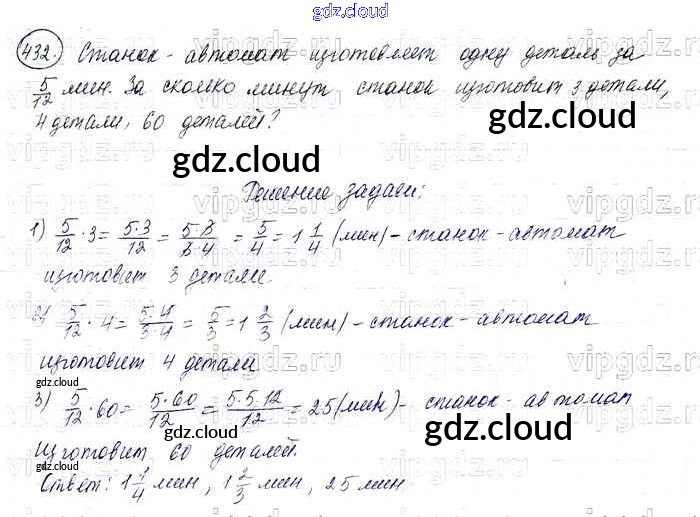 gdz.cloud
432. Станок-автомат изготовляет одну деталь за
5/12 мин. За сколько минут станок изготовит 3 детали,
4 детали, 60 деталей?
gdz.cloud
gdz.cloud
Решение задачи:
1) 5/12 · 3 = 5·3/12 = 5·3/3·4 = 5/4 = 1 1/4 (мин) - станок-автомат
изготовит 3 детали.
2) 5/12 · 4 = 5·4/3·4 = 5/3 = 1 2/3 (мин) - станок-автомат
изготовит 4 детали
gdz.cloud
gdz.cloud
3) 5/12 · 60 = 5·60/12 = 5·5·12/12 = 25 (мин) - станок-автомат
gdz.cloud
gdz.cloud
изготовит 60 деталей.
Ответ: 1 1/4 мин, 1 2/3 мин, 25 мин.
gdz.cloud
vipgdz.ru